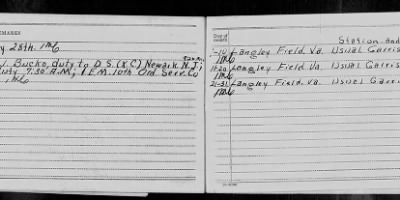 REMARKS
28th.
Bucko, duty to D.S. (XC) Newark N.J;
duty 7:30 A.M; 1 E.M. 10th Ord. Serv. Co
Station and
1-10 Langley Field. Va. Usual Garris
11-20 Langley Field. Va. Usual Garris
21-31 Langley Field. Va. Usual Garri